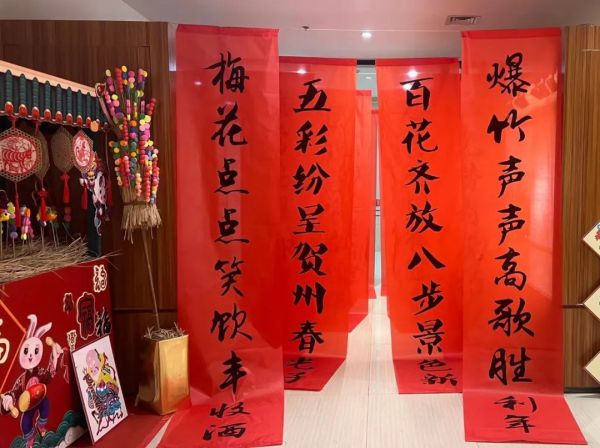 爆竹声声高歌胜利年
梅花点点笑饮丰收酒
百花齐放八步景色新
五彩纷呈贺州春
福
福